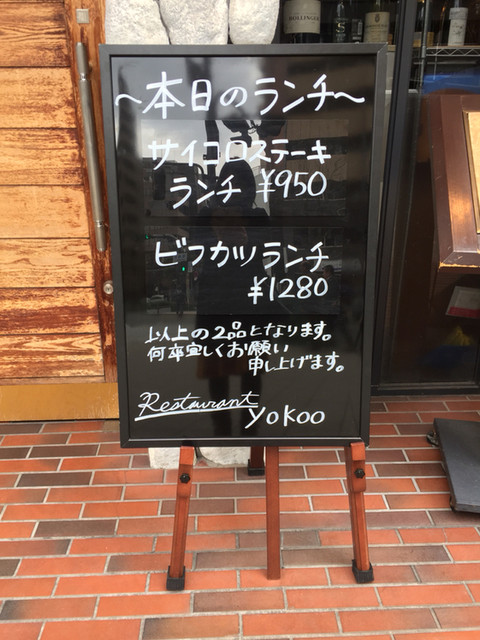 BOLLINGER
～本日のランチ～
サイコロステーキ
ランチ ¥950
ビフカツランチ
¥1280
以上の2品となります。
何卒宜しくお願い
申し上げます。
Restaurant
Yokoo